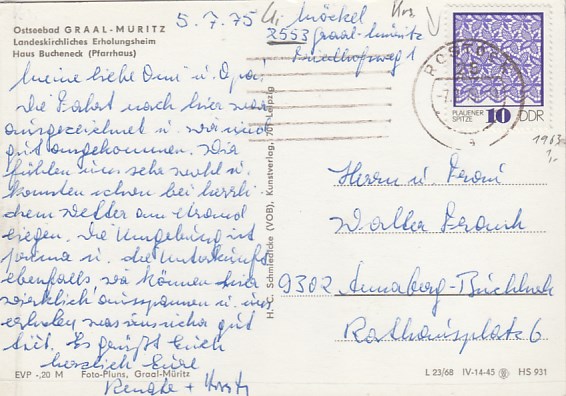 Ostseebad GRAAL-MÜRITZ
Landeskirchliches Erholungsheim
Haus Bucheneck (Pfarrhaus)
5.7.75
Möckel
2553 Graal-Müritz
Friedhofsweg 1
Meine liebe Omi u. Opa!
Die Fahrt nach hier war
ausgezeichnet u. wir sind
gut angekommen. Wir
fühlen uns sehr wohl u.
konnten schon bei herrli-
chem Wetter am Strand
liegen. Die Umgebung ist
prima u. die Unterkunft
ebenfalls. Wir können hier
wirklich ausspannen u. uns
erholen, was uns sicher gut
tut. Es grüßt Euch
herzlich Eure
Renate +
EVP -,20 M Foto-Pluns, Graal-Müritz
H. C. Schmiedicke (VOB), Kunstverlag, 701 Leipzig
ROSTOCK
PLAUENER
SPITZE 10 DDR
1963
Herrn u. Frau
Walter Frank
9302 Annaberg-Buchholz
Rathausplatz 6
L 23/68 IV-14-45 HS 931